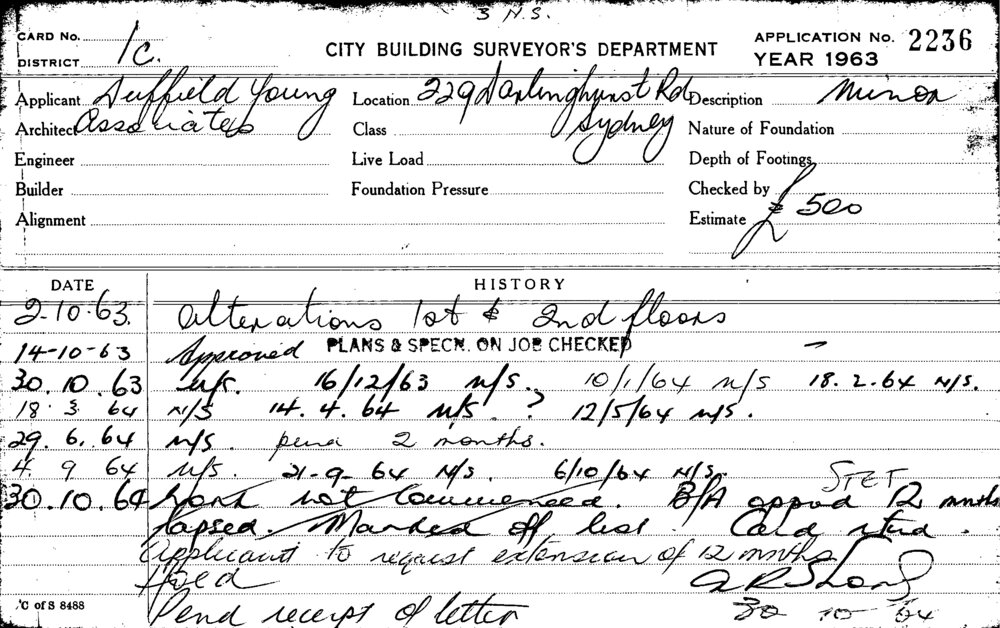 3 N.S.
CARD No. 1c.
DISTRICT
CITY BUILDING SURVEYOR'S DEPARTMENT
APPLICATION No. 2236
YEAR 1963
Applicant Duffield Young
Architect Associates
Engineer
Builder
Alignment
Location 229 Darlinghurst Rd
Class Sydney
Live Load
Foundation Pressure
Description Minor
Nature of Foundation
Depth of Footings
Checked by
Estimate £500
DATE HISTORY
2-10-63. alterations 1st & 2nd floors
14-10-63 Approved PLANS & SPECN. ON JOB CHECKED –
30.10.63 n/s. 16/12/63 n/s. 10/1/64 n/s 18.2.64 N/S.
18 3 64 N/S 14.4.64 n/s. ? 12/5/64 n/s.
29.6.64 n/s. pend 2 months.
4 9 64 n/s. 21-9-64 N/S. 6/10/64 N/S.
STET
30.10.64 Work not Commenced. B/A approd 12 mnths
lapsed. Marked off list. Card retd.
Applicant to request extension of 12 mnths
Hold
Pend receipt of letter 30 10 64
'C of S 8488